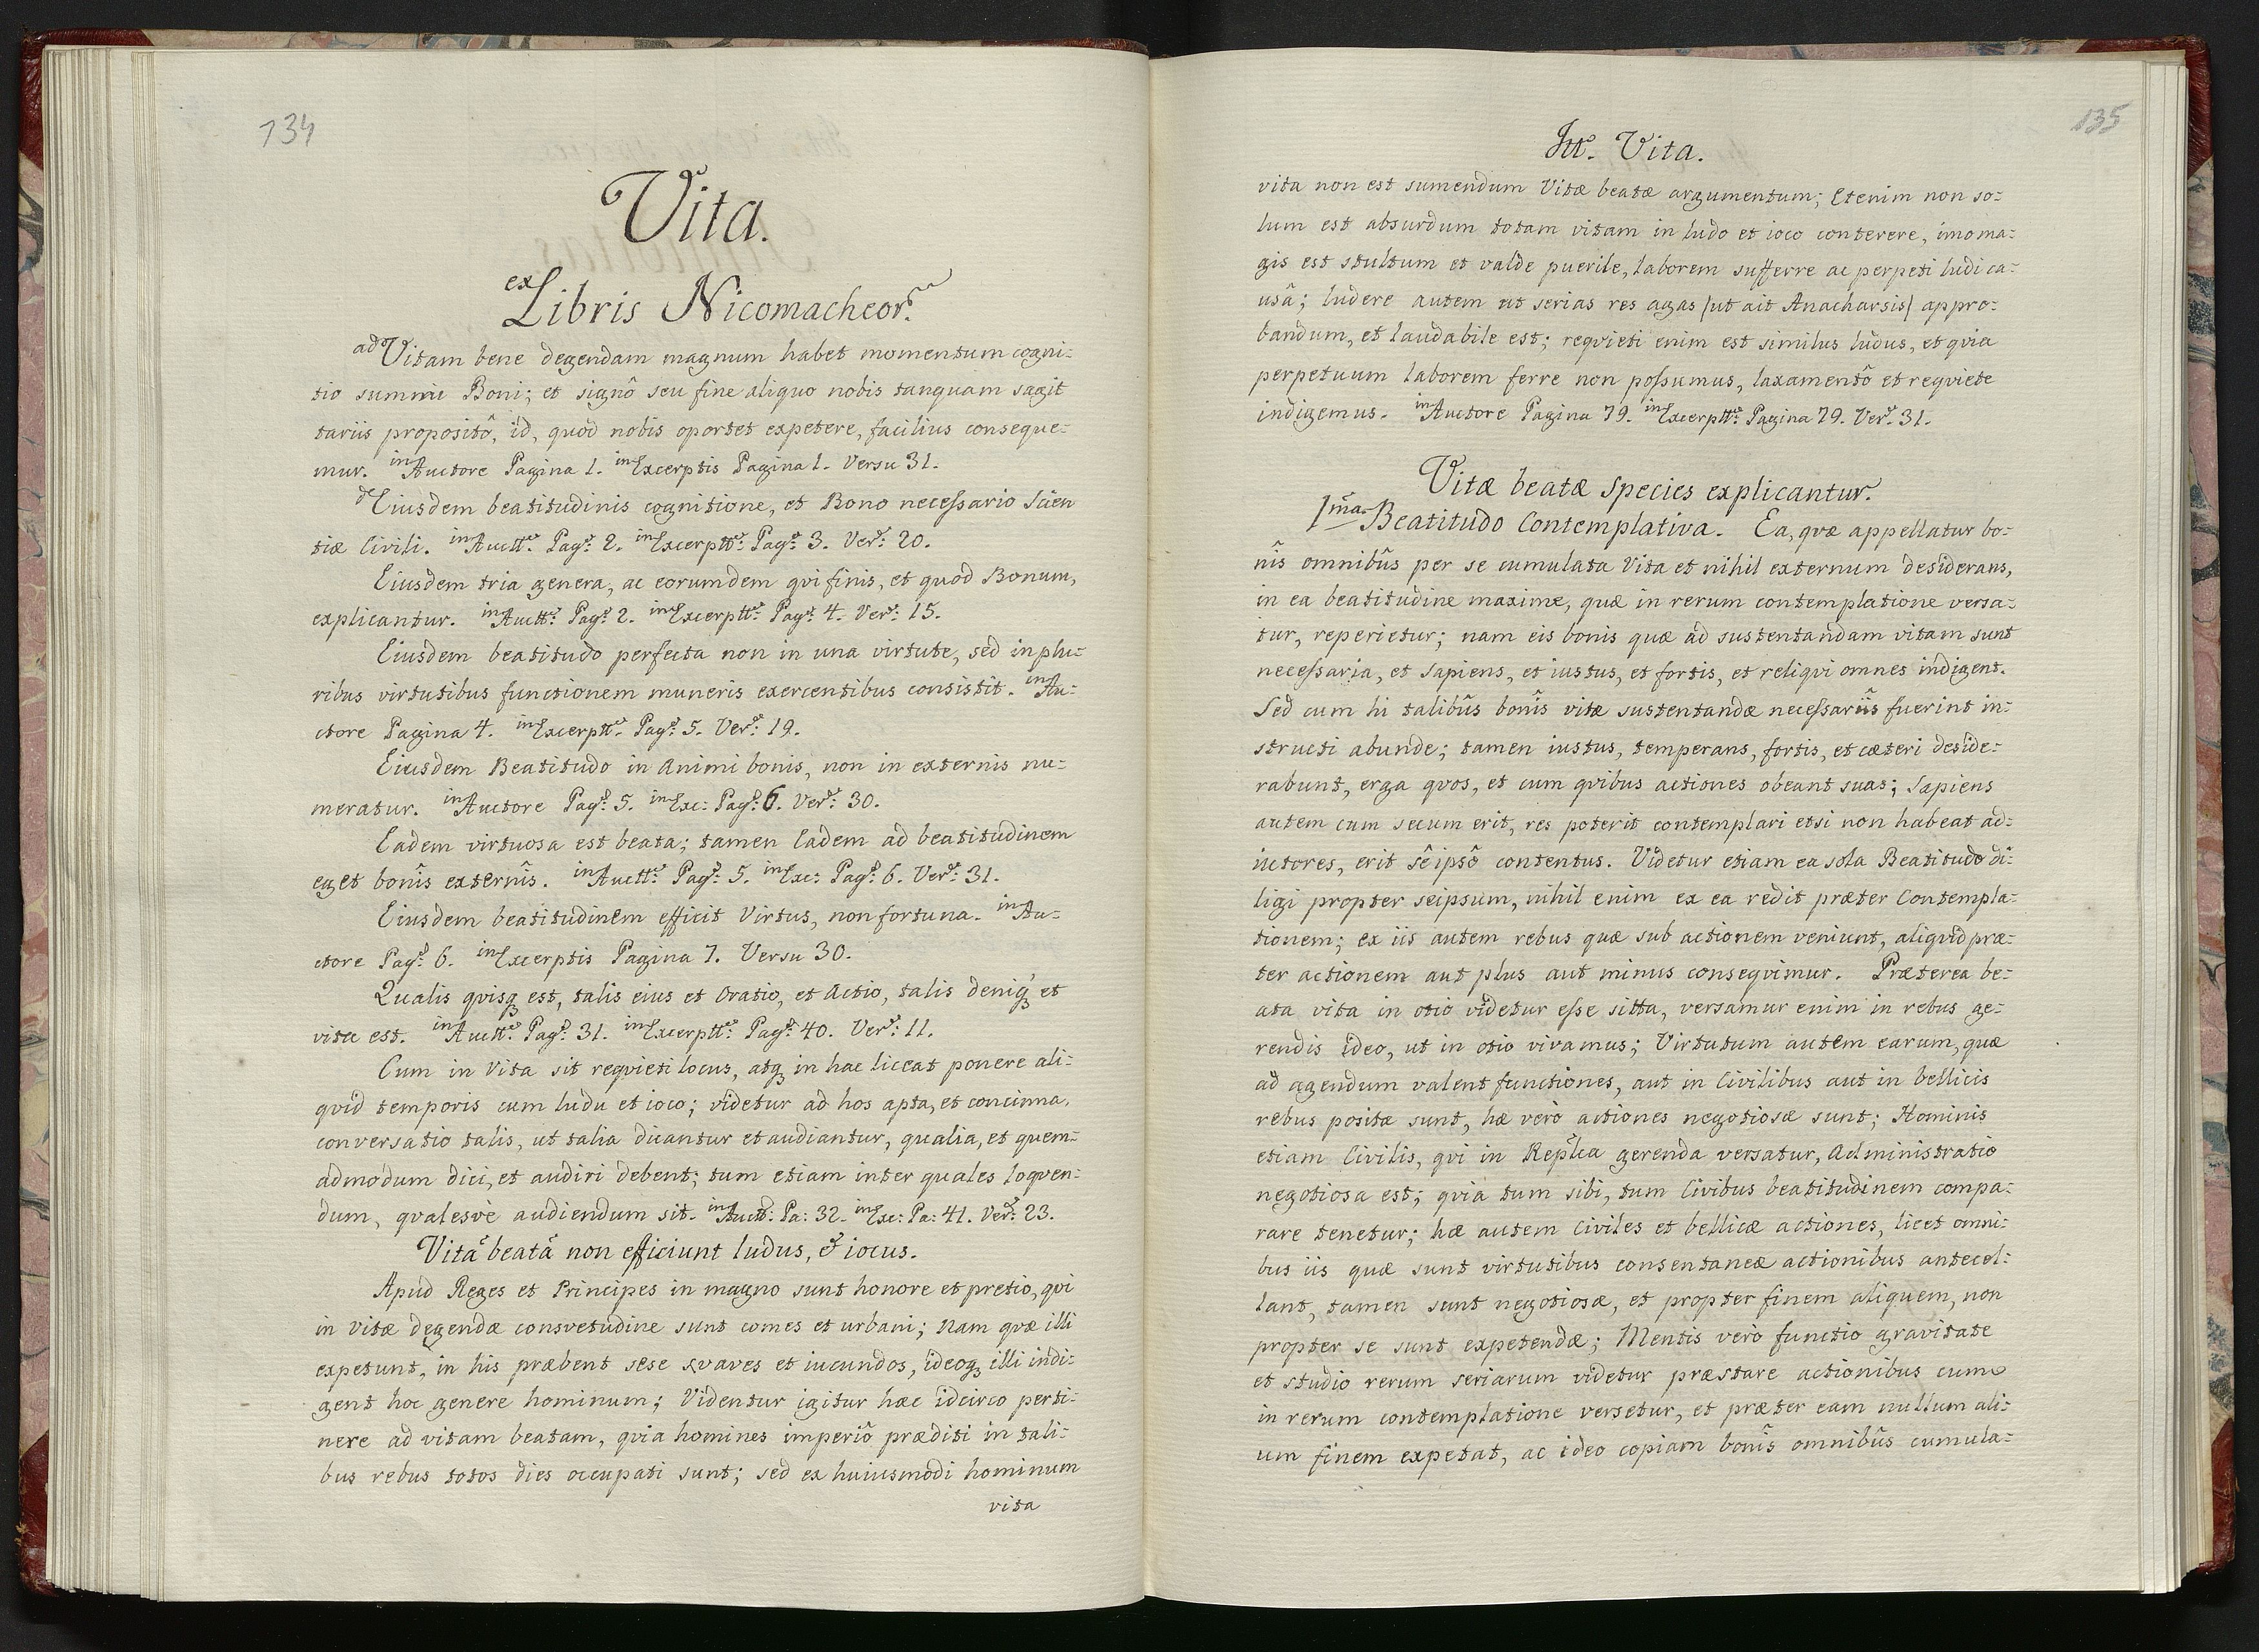 134
Vita.
ex Libris Nicomacheor.
ad Vitam bene degendam magnum habet momentum cogni:
tio summi Boni; et signô seu fine aliquo nobis tanquam sagit
tariis propositô, id, quod nobis oportet expetere, facilius conseque:
mur. in Auctore Pagina 1. in Excerptis Pagina 1. Versu 31.
de Eiusdem beatitudinis cognitione, et Bono necessario Scien
tiæ Civili. in Auctt: Pag: 2. in Excerptt: Pag: 3. Ver: 20.
Eiusdem tria genera, ac eorumdem qvi finis, et quod Bonum,
explicantur. in Auctt: Pag: 2. in Excerptt: Pag: 4. Ver: 15.
Eiusdem beatitudo perfecta non in una virtute, sed in plu:
ribus virtutibus functionem muneris exercentibus consistit. in Au:
ctore Pagina 4. in Excerptt: Pag: 5. Ver: 19.
Eiusdem Beatitudo in Animi bonis, non in externis nu:
meratur. in Auctore Pag: 5. in Exc: Pag: 6. Ver: 30.
Eadem virtuosa est beata; tamen Eadem ad beatitudinem
eget bonîs externîs. in Auctt: Pag: 5. in Exc: Pag: 6. Ver: 31.
Eiusdem beatitudinem efficit Virtus, non fortuna. in Au:
ctore Pag: 6. in Excerptis Pagina 7. Versu 30.
Qualis qvisq est, talis eius et Oratio, et Actio, talis deniq et
vita est. in Auctt: Pag: 31. in Excerptt: Pag: 40. Ver: 11.
Cum in Vita sit reqvieti locus, atq in hac liceat ponere ali:
qvid temporis cum ludu et ioco; videtur ad hos apta, et concinna,
conversatio talis, ut talia dicantur et audiantur, qualia, et quem:
admodum dici, et audiri debent; tum etiam inter quales loqven:
dum, qvalesvè audiendum sit. in Auctt: Pa: 32. in Exc: Pa: 41. Ver: 23.
Vitã beatã non efficiunt ludus, & iocus.
Apud Reges et Principes in magno sunt honore et pretio, qvi
in vitæ degendæ consvetudine sunt comes et urbani; Nam qvæ illi
expetunt, in his præbent sese svaves et iucundos, ideoq illi indi:
gent hoc genere hominum; Videntur igitur hæc idcirco perti:
nere ad vitam beatam, qvia homines imperiô præditi in tali:
bus rebus totos dies occupati sunt; sed ex huiusmodi hominum
vita
135
Itt. Vita.
vita non est sumendum Vitæ beatæ argumentum; Etenim non so:
lum est absurdum totam vitam in ludo et ioco conterere, imo ma:
gis est stultum et valde puerile, laborem sufferre ac perpeti ludi ca:
usâ; ludere autem ut serias res agas (ut ait Anacharsis) appro:
bandum, et laudabile est; reqvieti enim est similus ludus, et qvia
perpetuum laborem ferre non possumus, laxamentô et reqviete
indigemus. in Auctore Pagina 79. in Excerptt: Pagina 79. Ver: 31.
Vitæ beatæ species explicantur.
1ma Beatitudo Contemplativa. Ea, qvæ appellatur bo:
nîs omnibûs per se cumulata Vita et nihil externum desiderans,
in ea beatitudine maxime, quæ in rerum contemplatione versa:
tur, reperietur; nam eis bonis quæ ad sustentandam vitam sunt
necessaria, et sapiens, et iustus, et fortis, et reliqvi omnes indigent.
Sed cum hi talibûs bonîs vitæ sustentandæ necessariîs fuerint in:
structi abunde; tamen iustus, temperans, fortis, et cæteri deside:
rabunt, erga qvos, et cum qvibus actiones obeant suas; Sapiens
autem cum secum erit, res poterit contemplari etsi non habeat ad:
iutores, erit sêipsô contentus. Videtur etiam ea sola Beatitudo di:
ligi propter seipsum, nihil enim ex ea redit præter Contempla:
tionem; ex iis autem rebus quæ sub actionem veniunt, aliqvid præ:
ter actionem aut plus aut minus conseqvimur. Præterea be:
ata vita in otio videtur esse sitta, versamur enim in rebus ge:
rendis ideo, ut in otio vivamus; Virtutum autem earum, quæ
ad agendum valent functiones, aut in Civilibus aut in bellicis
rebus positæ sunt, hæ verò actiones negotiosæ sunt; Hominis
etiam Civilis, qvi in Replca gerenda versatur, Administratio
negotiosa est; qvia tum sibi, tum Civibus beatitudinem compa:
rare tenetur; hæ autem Civiles et bellicæ actiones, licet omni:
bus iis quæ sunt virtutibus consentaneæ actionibus antecel:
lant, tamen sunt negotiosæ, et propter finem aliquem, non
propter se sunt expetendæ; Mentis verò functio gravitate
et studio rerum seriarum videtur præstare actionibus cum
in rerum contemplatione versetur, et præter eam nullum ali:
um finem expetat, ac ideo copiam bonîs omnibûs cumula: